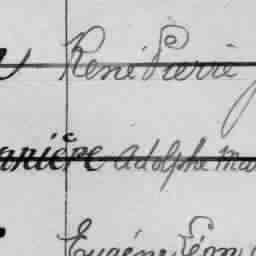 René Pierre
anière Adolphe Ma
Eugène Léon